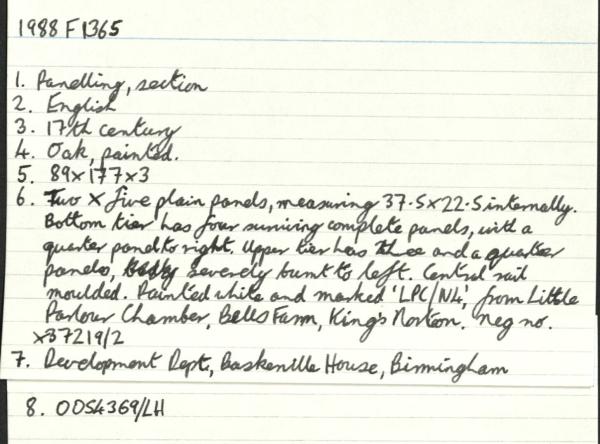 1988 F 1365
1. Panelling, section
2. English
3. 17th century
4. Oak, painted.
5. 89x177x3
6. Two X five plain panels, measuring 37.5x22.5 internally.
Bottom tier has four surviving complete panels, with a
quarter panel to right. Upper tier has three and a quarter
panels, severely burnt to left. Central rail
moulded. Painted white and marked 'LPC/N4', from Little
Parlour Chamber, Bells Farm, King's Norton. Neg no.
x37219/2
7. Development Dept, Baskerville House, Birmingham
8. ODS4369/LH